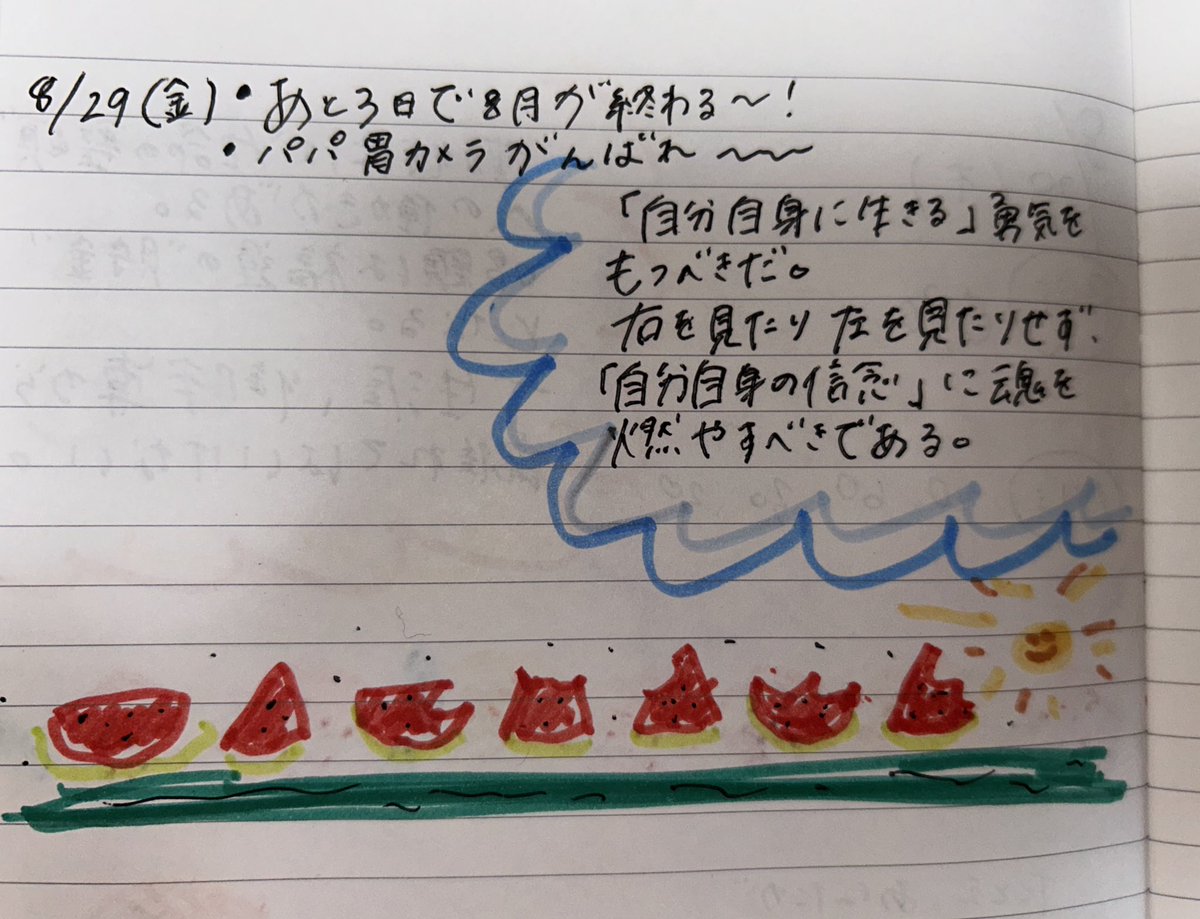 8/29(金)・あと3日で8月が終わる〜！
・パパ胃カメラがんばれ〜〜
「自分自身に生きる」勇気を
もつべきだ。
右を見たり左を見たりせず、
「自分自身の信念」に魂を
燃やすべきである。